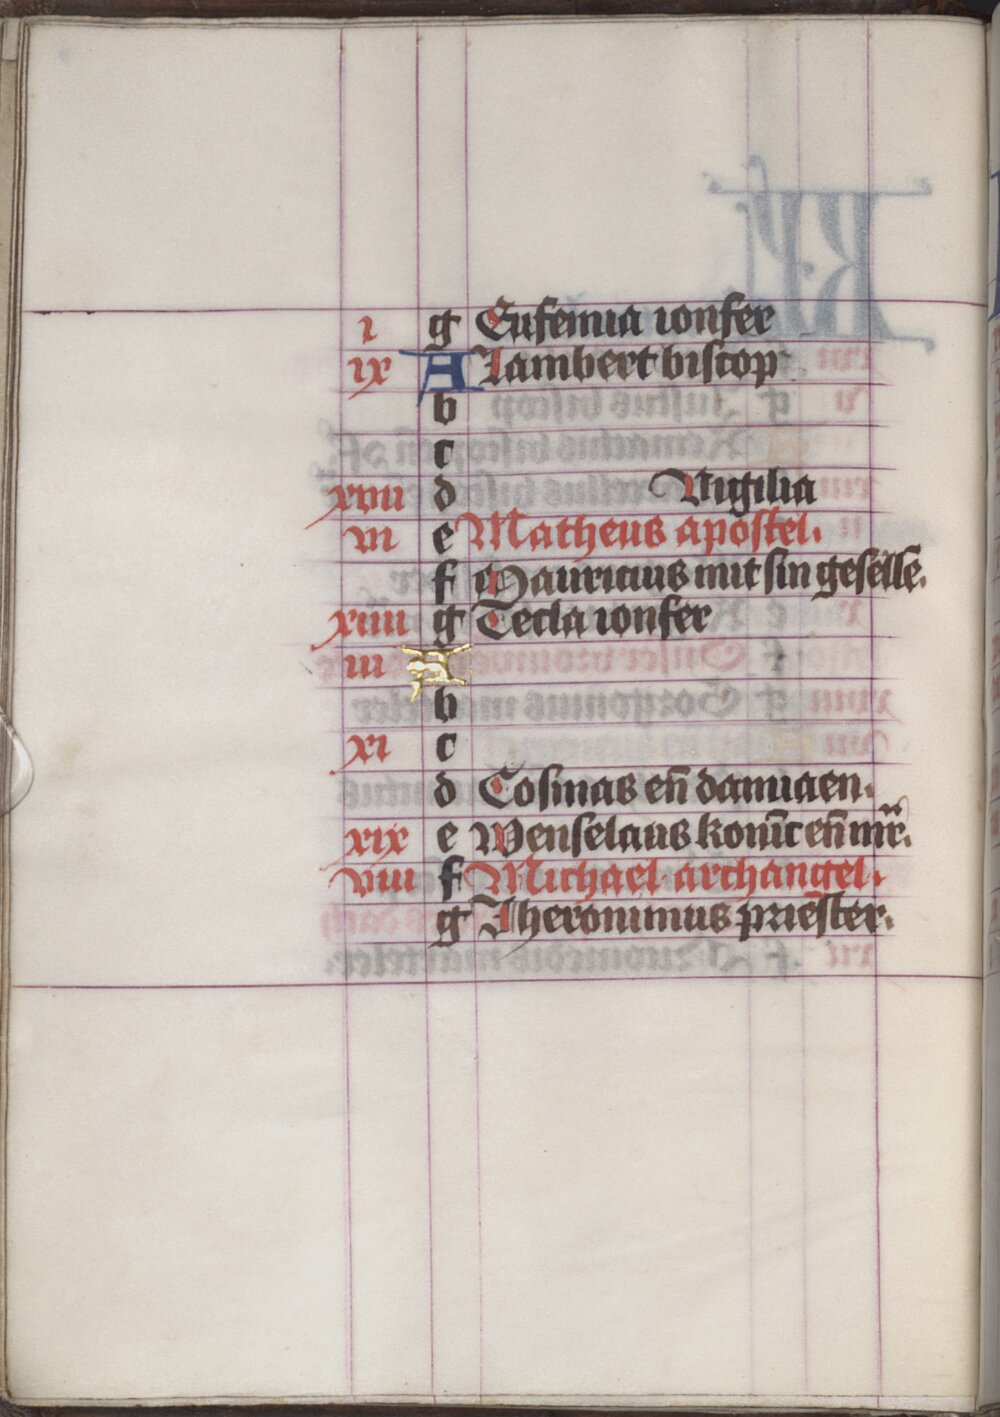 i g Eufemia ionfer
ix A Lambert biscop
b
c
xvii d Vigilia
vi e Matheus apostel.
f Mauricius mit sin geselle.
xiiii g Tecla ionfer
iii A
b
xi c
d Cosmas en̄ damiaen.
xix e Wenselaus konīc en̄ mr̄.
viii f Michael archangel.
g Iheronimus priester.